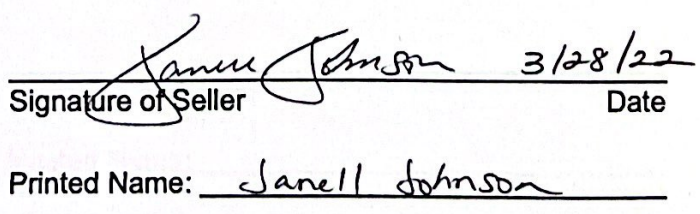 Janell Johnson 3/28/22
Signature of Seller Date
Printed Name: Janell Johnson